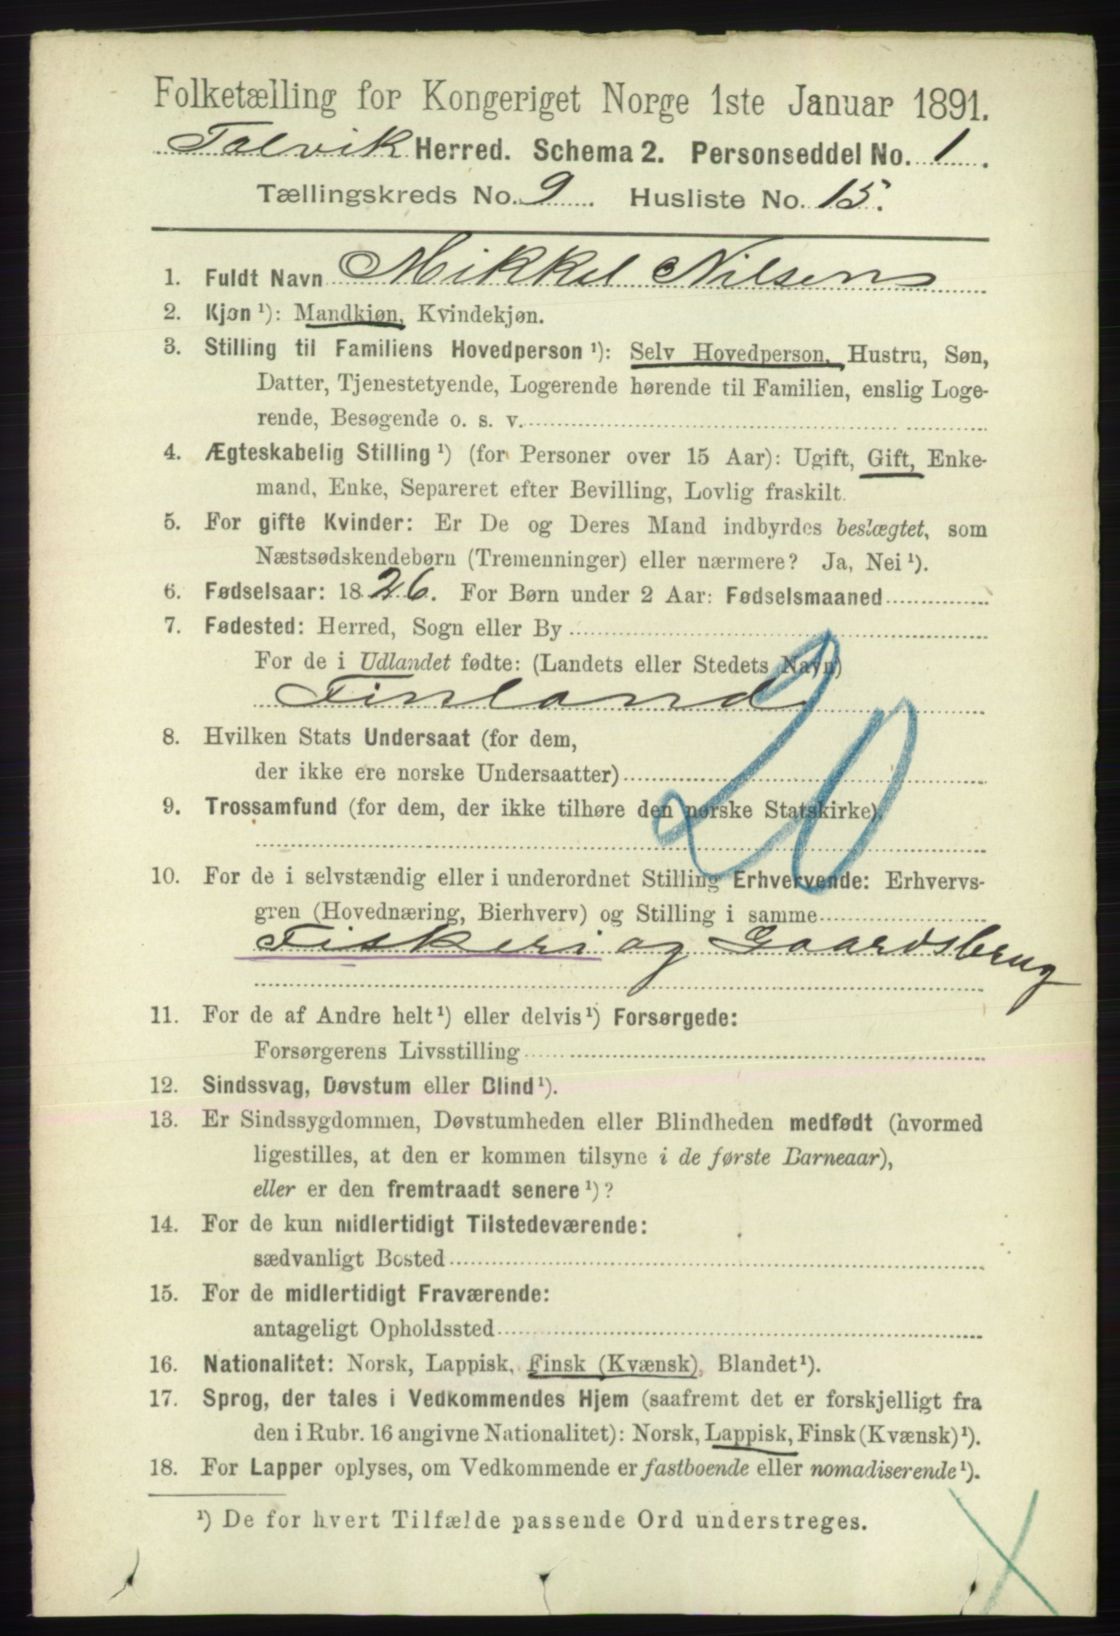 Folketælling for Kongeriget Norge 1ste Januar 1891.
Talvik Herred. Schema 2. Personseddel No. 1.
Tællingskreds No. 9. Husliste No. 15.
1. Fuldt Navn Mikkel Nilsen
2. Kjøn ¹): Mandkjøn, Kvindekjøn.
3. Stilling til Familiens Hovedperson ¹): Selv Hovedperson, Hustru, Søn,
Datter, Tjenestetyende, Logerende hørende til Familien, enslig Loge-
rende, Besøgende o. s. v.
4. Ægteskabelig Stilling ¹) (for Personer over 15 Aar): Ugift, Gift, Enke-
mand, Enke, Separeret efter Bevilling, Lovlig fraskilt.
5. For gifte Kvinder: Er De og Deres Mand indbyrdes beslægtet, som
Næstsødskendebørn (Tremenninger) eller nærmere? Ja, Nei ¹).
6. Fødselsaar: 1826. For Børn under 2 Aar: Fødselsmaaned
7. Fødested: Herred, Sogn eller By
For de i Udlandet fødte: (Landets eller Stedets Navn)
Finland
20
8. Hvilken Stats Undersaat (for dem,
der ikke ere norske Undersaatter)
9. Trossamfund (for dem, der ikke tilhøre den norske Statskirke)
10. For de i selvstændig eller i underordnet Stilling Erhvervende: Erhvervs-
gren (Hovednæring, Bierhverv) og Stilling i samme
Fiskeri og Gaardsbrug
11. For de af Andre helt ¹) eller delvis ¹) Forsørgede:
Forsørgerens Livsstilling
12. Sindssvag, Døvstum eller Blind ¹).
13. Er Sindssygdommen, Døvstumheden eller Blindheden medfødt (hvormed
ligestilles, at den er kommen tilsyne i de første Barneaar),
eller er den fremtraadt senere ¹)?
14. For de kun midlertidigt Tilstedeværende:
sædvanligt Bosted
15. For de midlertidigt Fraværende:
antageligt Opholdssted
16. Nationalitet: Norsk, Lappisk, Finsk (Kvænsk), Blandet ¹).
17. Sprog, der tales i Vedkommendes Hjem (saafremt det er forskjelligt fra
den i Rubr. 16 angivne Nationalitet): Norsk, Lappisk, Finsk (Kvænsk) ¹).
18. For Lapper oplyses, om Vedkommende er fastboende eller nomadiserende ¹).
¹) De for hvert Tilfælde passende Ord understreges.